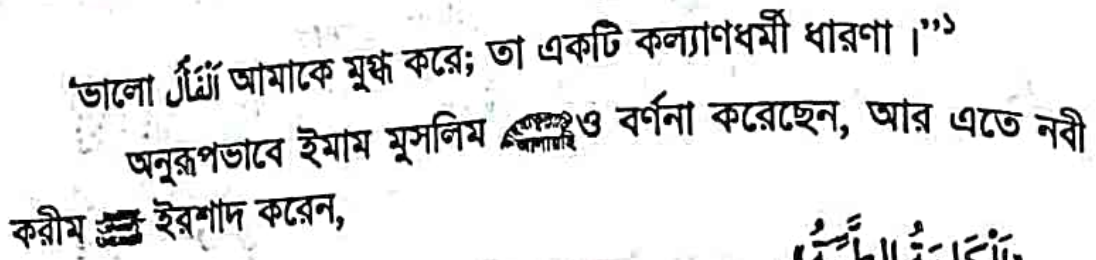 ‘ভালো اَلْفَأْلُ আমাকে মুগ্ধ করে; তা একটি কল্যাণধর্মী ধারণা।”১
অনুরূপভাবে ইমাম মুসলিম ও বর্ণনা করেছেন, আর এতে নবী
করীম ﷺ ইরশাদ করেন,